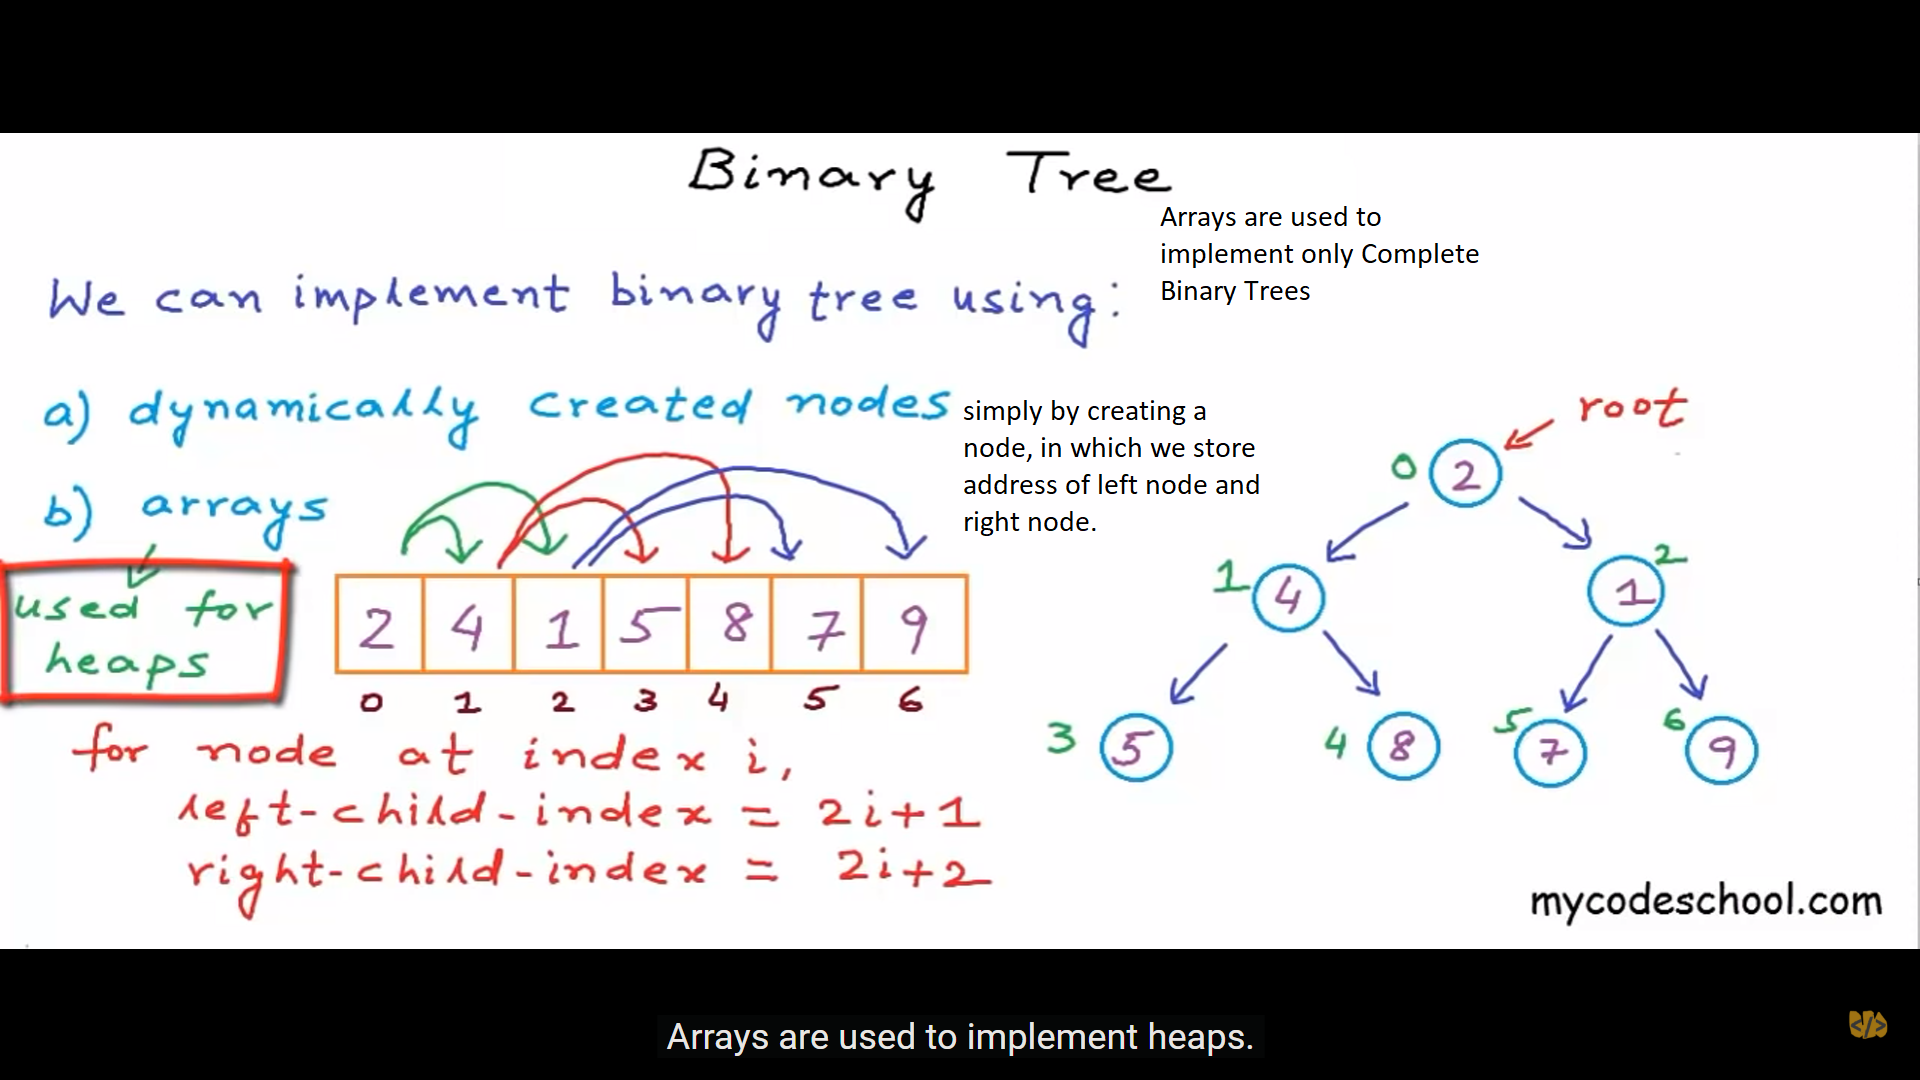 Binary Tree
Arrays are used to
implement only Complete
Binary Trees
We can implement binary tree using:
a) dynamically created nodes
simply by creating a
node, in which we store
address of left node and
right node.
b) arrays
used for
heaps
2 4 1 5 8 7 9
0 1 2 3 4 5 6
for node at index i,
left-child-index = 2i+1
right-child-index = 2i+2
root
0 2
1 4
1 2
3 5
4 8
5 7
6 9
mycodeschool.com
Arrays are used to implement heaps.